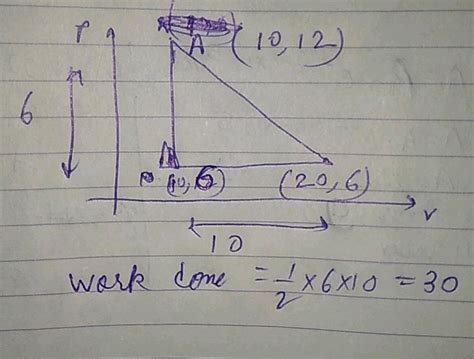 P
A (10,12)
6
(10,6) (20,6)
V
10
work done = 1/2 × 6 × 10 = 30